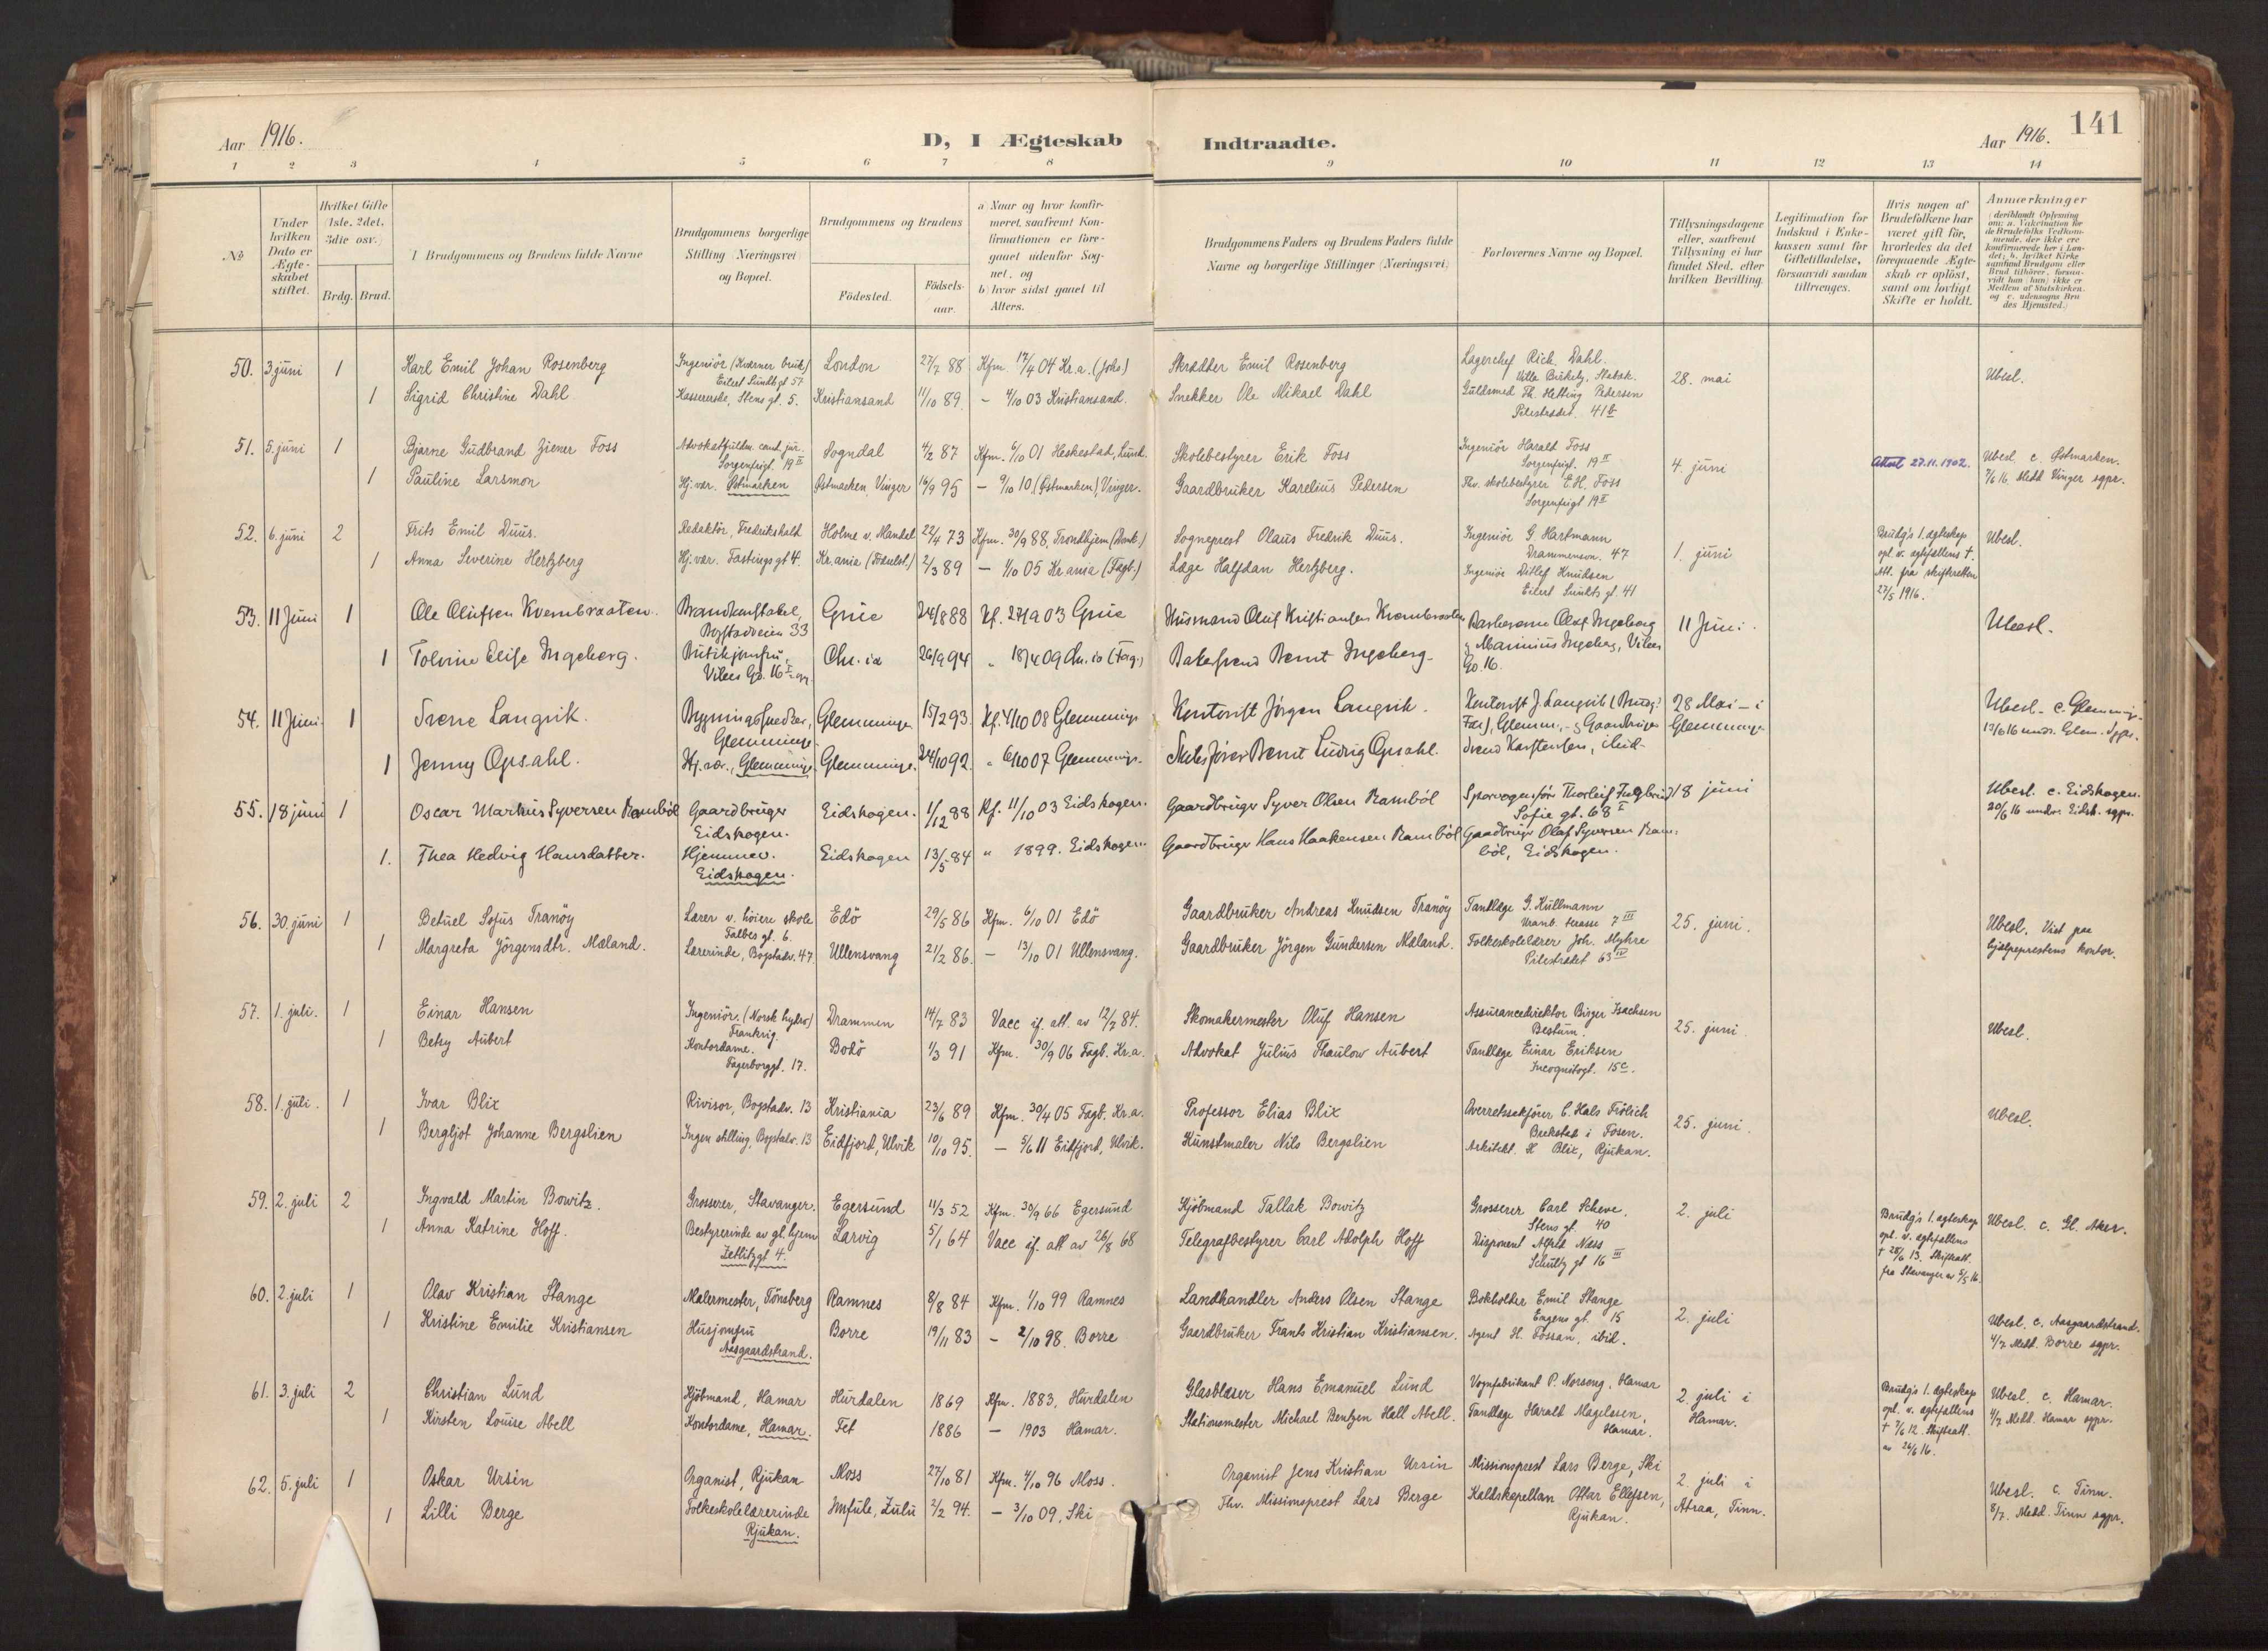 Aar 1916. D, I Ægteskab Indtraadte. Aar 1916. 141
1 2 3 4 5 6 7 8 9 10 11 12 13 14
No
Under hvilken Dato er Ægteskabet stiftet.
Hvilket Gifte (1ste, 2det, 3die osv.)
Brdg. Brud.
Brudgommens og Brudens fulde Navne
Brudgommens borgerlige Stilling (Næringsvei) og Bopæl.
Brudgommens og Brudens
Födested. Födselsaar.
a) Naar og hvor konfirmeret, saafremt Konfirmationen er foregaaet udenfor Sognet, og
b) hvor sidst gaaet til Alters.
Brudgommens Faders og Brudens Faders fulde Navne og borgerlige Stillinger (Næringsvei)
Forlovernes Navne og Bopæl.
Tillysningsdagene eller, saafremt Tillysning ei har fundet Sted, efter hvilken Bevilling.
Legitimation for Indskud i Enkekassen samt for Giftetilladelse, forsaavidt saadan tiltrænges.
Hvis nogen af Brudefolkene har været gift før, hvorledes da det foregaaende Ægteskab er oplöst, samt om lovligt Skifte er holdt.
Anmærkninger
50. 3 juni 1 Karl Emil Johan Rosenberg Ingeniör (Kværner bruk) Eilert Sundts gt 57 London 27/7 88 Kfm. 17/4 04 Kr.a. (Johs) Skrædder Emil Rosenberg Lagerchef Rich. Dahl. Villa Birkely, Stabæk. 28. mai Ubesl.
1 Sigrid Christine Dahl Kassererske, Stens gt. 5. Kristiansand 11/10 89. - 4/10 03 Kristiansand. Snekker Ole Mikael Dahl Guldsmed Th. Hetting Pedersen Pilestrædet. 41b
51. 5. juni 1 Bjarne Gudbrand Ziener Foss Advokatfuldm. cand. jur. Sorgenfrigt. 19 II Sogndal 4/2 87 Kfm. 6/10 01 Heskestad, Lund. Skolebestyrer Erik Foss Ingeniör Harald Foss Sorgenfrigt. 19 II 4. juni Attest 27.11.1902. Ubesl. c. Østmarken.
1 Pauline Larsmon Hj. vær. Østmarken Østmarken, Vinger 16/9 95 - 9/10 10 (Østmarken), Vinger. Gaardbruker Karelius Pedersen Fhv. skolebestyrer E.H. Foss Sorgenfrigt 19 II 7/6 16. Medd Vinger sgpr.
52. 6. juni 2 Frits Emil Duus. Redaktör, Fredrikshald Holme v. Mandal 22/4 73 Kfm. 30/9 88, Trondhjem (Domk.) Sogneprest Olaus Fredrik Duus. Ingeniör G. Hartmann Drammensv. 47 1. juni Brudg's 1. egteskap opl. v. egtefællens †. Att. fra skifteretten 27/5 1916. Ubesl.
1 Anna Severine Hertzberg Hj. vær. Fastings gt 4. Kr.ania (Födselst.) 2/3 89 - 1/10 05 Kr.ania (Fagb.) Læge Halfdan Hertzberg. Ingeniör Ditlef Knudsen Eilert Sundts gt. 41
53. 11 Juni 1 Ole Olufsen Kvembraaten. Brandkonstabel, Bogstadveien 33 Grue 24/8 88 Kf. 27/9 03 Grue Husmand Oluf Kristiansen Kvembraaten Barberen Olaf Ingeberg 11 Juni. Ubesl.
1 Tolvine Elise Ingeberg. Butikjomfru, Vibes Gd. 16 Chr. ia 26/9 94 " 18/4 09 Chr. ia (Fag.) Bakersvend Bernt Ingeberg & Marinius Ingeberg, Vibes Gd. 16.
54. 11 Juni 1 Svene Langvik. Bygningssnedker, Glemminge. Glemminge 15/2 93. Kf. 4/10 08 Glemminge Kontorist Jörgen Langvik. Kontorist J. Langvik (Brudg. Far), Glemm., & Gaardbruger Svend Karstensen, ibid. 28 Mai i Glemminge Ubesl. c. Glemming.
1 Jenny Opsahl. Hj. vær., Glemminge. Glemminge. 24/10 92. " 6/10 07 Glemminge. Bernt Ludvig Opsahl. 13/6 16 undr. Glem. Sgpr.
55. 18 juni 1 Oscar Markus Syversen Ramböl Gaardbruger Eidskogen. Eidskogen. 1/12 88 Kf. 11/10 03 Eidskogen. Gaardbruger Syver Olsen Ramböl Sporvognsför Thorleif Fuglbrud Sofie gt. 68 I 18 juni Ubesl. c. Eidskogen.
1. Thea Hedvig Hansdatter. Hjemmev. Eidskogen. Eidskogen 13/5 84 " 1899. Eidskogen. Gaardbruger Hans Haakensen Ramböl Gaardbruger Olaf Syversen Ramböl, Eidskogen. 20/6 16 under. Eidsk. sgpr.
56. 30. juni 1 Betuel Sofus Tranöy Lærer v. höiere skole Falbes gt. 6. Edö 29/5 86 Kfm. 6/10 01 Edö Gaardbruker Andreas Knudsen Tranöy Tandlæge G. Kullmann Uranb. terasse 7 III 25. juni. Ubesl. Viet paa
1 Margreta Jörgensdtr. Mæland. Lærerinde, Bogstadv. 47. Ullensvang 21/2 86. - 13/10 01 Ullensvang. Gaardbruker Jörgen Gundersen Mæland. Folkeskolelærer Joh. Myhre Pilestrædet 63 IV hjælpeprestens kontor.
57. 1. juli. 1 Einar Hansen Ingeniör. (Norsk hydro) Frankrig. Drammen 14/7 83 Vacc if. att. av 12/7 84. Skomakermester Oluf Hansen Assurancedirektör Birger Isachsen Bestum. 25. juni Ubesl.
1 Betzy Aubert Kontordame. Fagerborggt. 17. Bodö 1/3 91 Kfm. 30/9 06 Fagb. Kr.a. Advokat Julius Thaulow Aubert Tandlæge Einar Eriksen Incognitogt. 15c.
58. 1. juli. 1 Ivar Blix Rivisor, Bogstadv. 13 Kristiania 23/6 89 Kfm. 30/4 05 Fagb. Kr.a. Professor Elias Blix Overretssakförer C. Hals Frölich Beekstad i Fosen. 25. juni. Ubesl.
1 Bergljot Johanne Bergslien Ingen stilling, Bogstadv. 13 Eidfjord, Ulvik 10/10 95. - 5/6 11 Eidfjord, Ulvik. Kunstmaler Nils Bergslien Arkitekt. H Blix, Rjukan.
59. 2. juli 2 Ingvald Martin Bowitz. Grosserer, Stavanger. Egersund 11/3 52 Kfm. 30/9 66 Egersund Kjöbmand Tallak Bowitz Grosserer Carl Scheve. Stens gt. 40 2. juli Brudg's 1. egteskap opl. v. egtefællens † 28/6 13. Skifteatt. fra Stavanger av 5/5 16. Ubesl. c. Gl. Aker.
1 Anna Katrine Hoff. Bestyrerinde av gl. hjem Zetlitzgt 4. Larvig 5/1 64 Vacc if. att av 26/8 68 Telegrafbestyrer Carl Adolph Hoff Disponent Alfred Næss Schultz gt 16 III
60. 2. juli 1 Olav Kristian Stange Malermester, Tönsberg Ramnes 8/8 84 Kfm. 1/10 99 Ramnes Landhandler Anders Olsen Stange Bokholder Emil Stange Eugens gt. 15 2. juli Ubesl. c. Aasgaardstrand.
1 Kristine Emilie Kristiansen Husjomfru Aasgaardstrand. Borre 19/11 83 - 2/10 98. Borre Gaardbruker Frants Kristian Kristiansen. Agent H. Fossan, ibid. 4/7 Medd. Borre sgpr.
61. 3. juli 2 Christian Lund Kjöbmand, Hamar Hurdalen 1869 Kfm. 1883, Hurdalen Glasblæser Hans Emanuel Lund Vognfabrikant P. Norsong, Hamar 2. juli i Hamar. Brudg's 1. egteskap opl. v. egtefællens † 7/6 12. Skifteatt. av 26/6 16. Ubesl. c. Hamar.
1 Kirsten Louise Abell Kontordame, Hamar. Fet 1886 - 1903 Hamar. Stationsmester Michael Bentzen Hall Abell. Tandlæge Harald Magelssen, Hamar. 4/7 Medd. Hamar sgpr.
62. 5. juli 1 Oskar Ursin Organist, Rjukan Moss 27/10 81 Kfm. 4/10 96 Moss. Organist Jens Kristian Ursin Missionsprest Lars Berge, Ski 2 juli i Atraa, Tinn. Ubesl. c. Tinn.
1 Lilli Berge Folkeskolelærerinde Rjukan. Imfule, Zulu 2/2 94. - 3/10 09, Ski Fhv. Missionsprest Lars Berge Kaldskapellan Ottar Ellefsen, Rjukan. 8/7. Medd. Tinn sgpr.